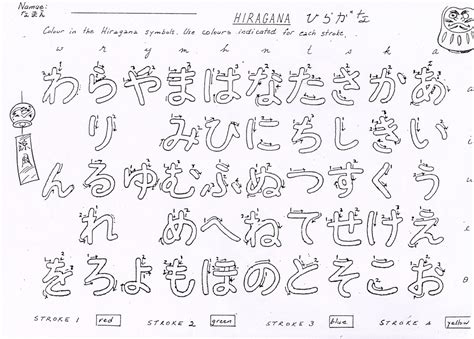 Namae:
なまえ
HIRAGANA ひらがな
Colour in the Hiragana symbols. Use colours indicated for each stroke.
w r y m h n t s k a
わらやまはなたさかあ a
り みひにちしきい i
んるゆむふぬつすくう u
れ めへねてせけえ e
をろよもほのとそこお o
涼風
STROKE 1 red STROKE 2 green STROKE 3 blue STROKE 4 yellow